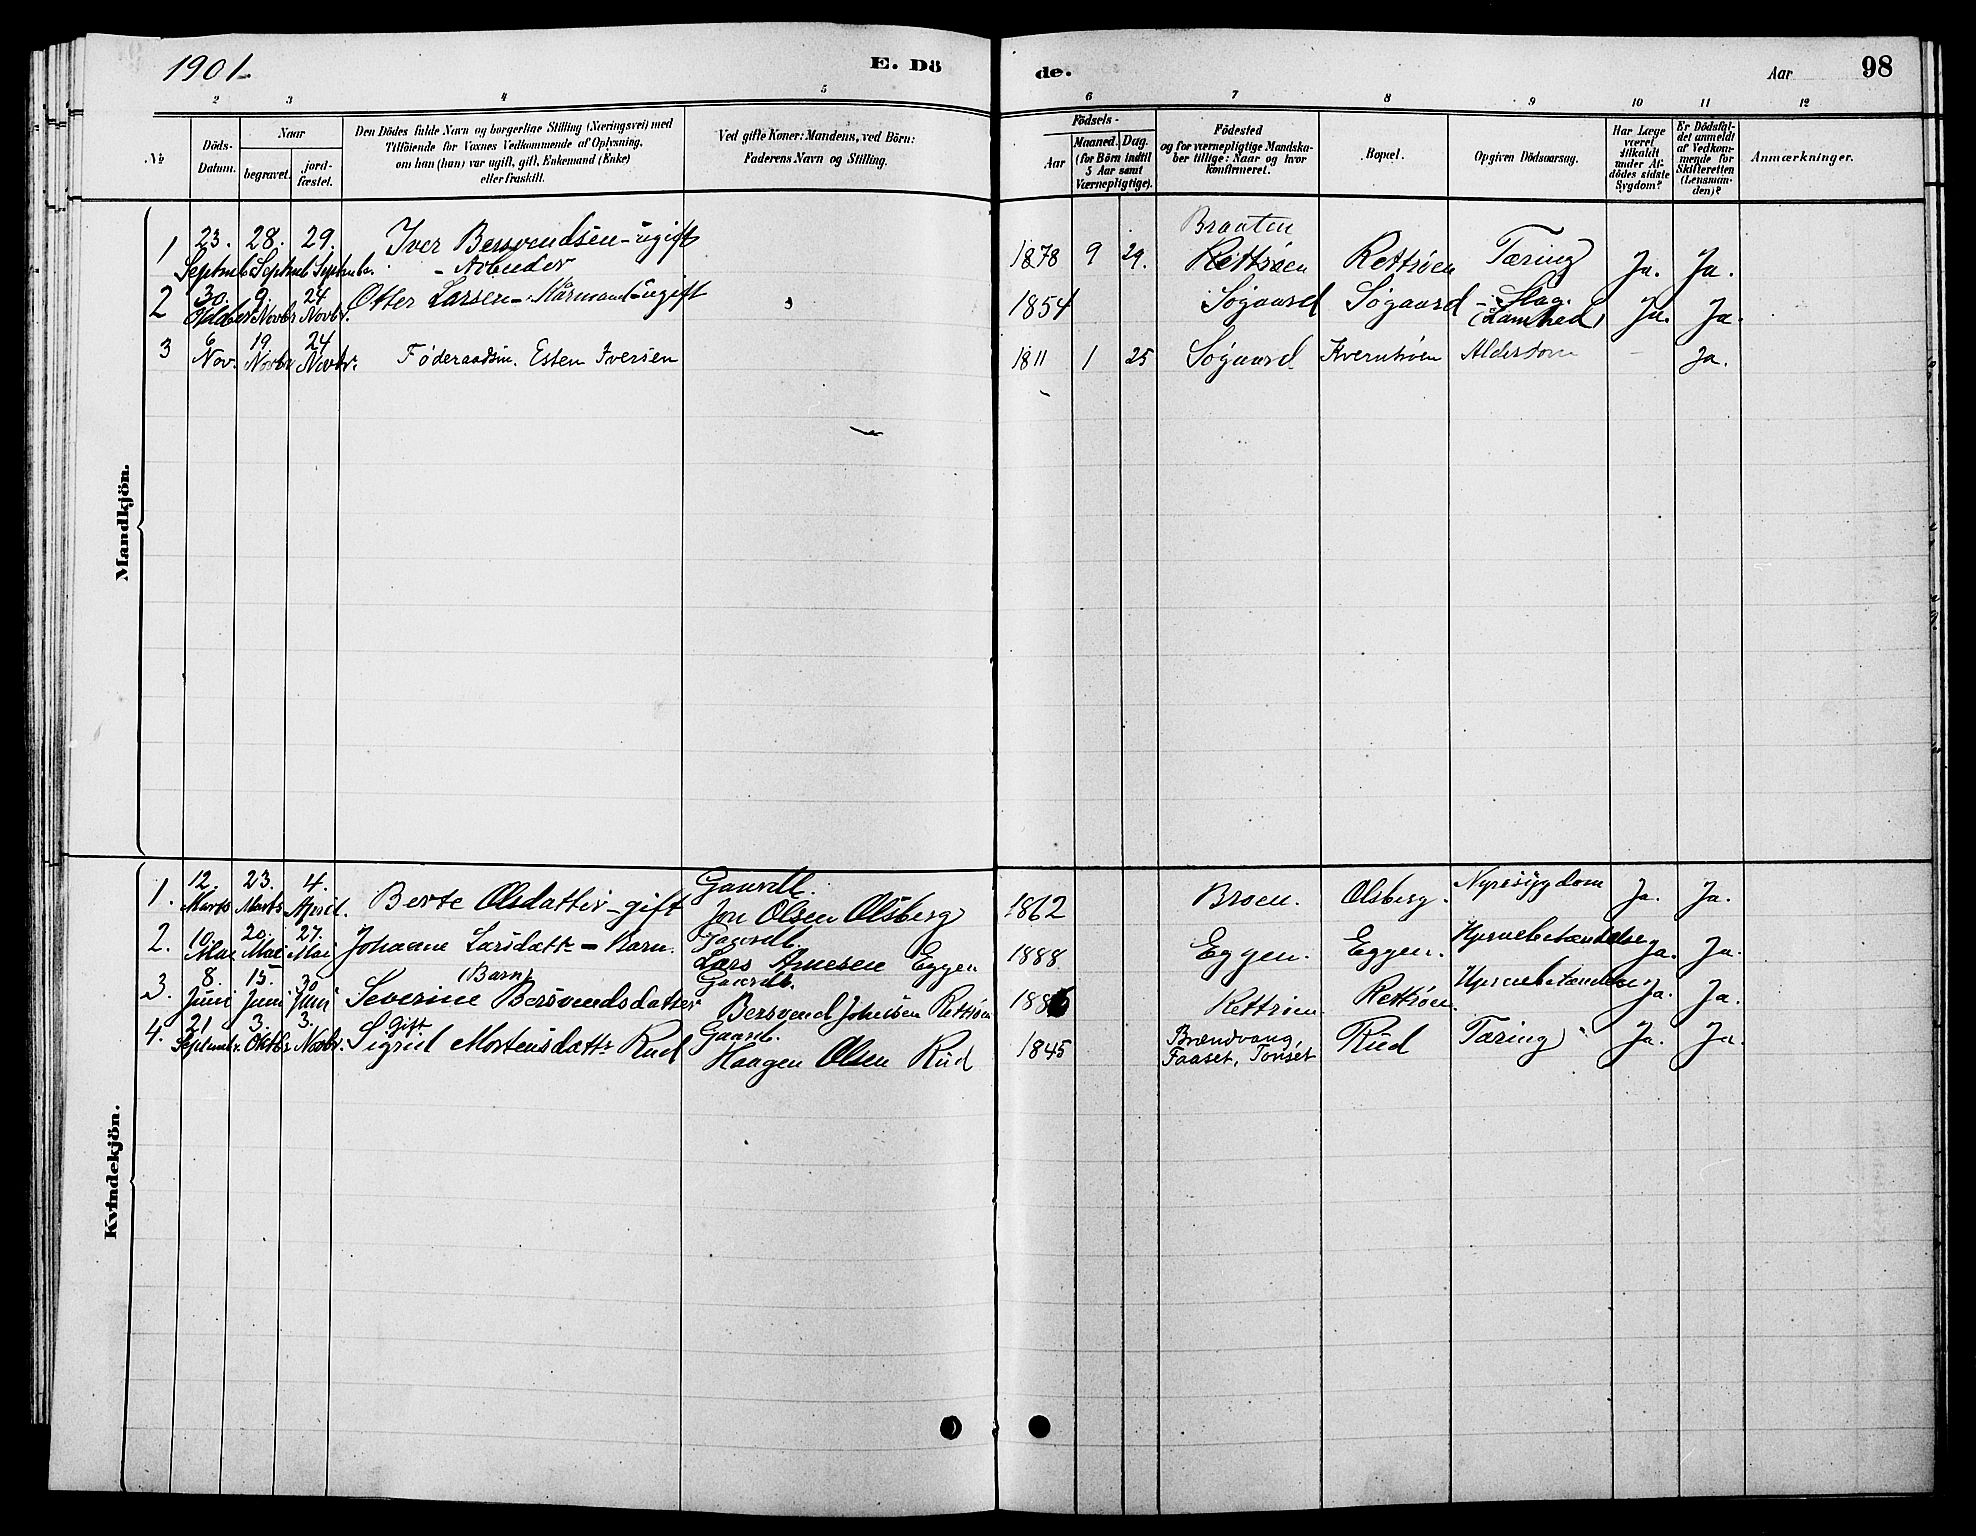 1901
E. Dö
de.
Aar
98
2 3 4 5 6 7 8 9 10 11 12
№
Döds-
Datum.
Naar
begravet.
jord-
fæstet.
Den Dödes fulde Navn og borgerlige Stilling (Næringsvei) med
Tilföiende for Voxnes Vedkommende af Oplysning,
om han (hun) var ugift, gift, Enkemand (Enke)
eller fraskilt.
Ved gifte Koner: Mandens, ved Börn:
Faderens Navn og Stilling.
Födsels-
Aar
Maaned. Dag.
(for Börn indtil
5 Aar samt
Værnepligtige).
Födested
og for værnepligtige Mandska-
ber tillige: Naar og hvor
konfirmeret.
Bopæl.
Opgiven Dödsaarsag.
Har Læge
været
tilkaldt
under Af-
dödes sidste
Sygdom?
Er Dödsfal-
det anmeldt
af Vedkom-
mende for
Skifteretten
(Lensman-
den)?
Anmærkninger.
Mandkjön.
1 23. 28. 29. Iver Bersvendsen - ugift 1878 9 29. Braaten
Septmb. Septmb. Septmbr. - Arbeider Rettröen Rettröen Tæring Ja. Ja.
2 30. 9. 24 Otter Larsen - ugift 1854 Søgaard Søgaard - Slag. Ja. Ja.
Oktober Novbr Novbr. (Lamhed)
3 6 19 24 Föderaadsm. Esten Iversen 1811 1 25 Søgaard Kvernhöen Alderdom - Ja.
Nov. Novbr Novbr.
Kvindekjön.
1. 12. 23. 4. Berte Olsdatter - gift Gaardb. 1862 Broen. Olsberg. Nyresygdom Ja. Ja.
Marts Marts April. Jon Olsen Olsberg
2. 10. 20. 27. Johanne Larsdatr - Barn. Gaardb. 1888 Eggen. Eggen. Hjernebetændelse Ja. Ja.
Mai Mai Mai Lars Arnesen Eggen
3. 8. 15. 30 (Barn) Gaardb.
Juni Juni Juni Severine Bersvendsdatter Bersvend Johnsen Rettröen 1886 Rettröen Rettröen Hjernebetændelse Ja. Ja.
4. 21 3. 3. gift Gaardb. 1845 Brændvang, Rud Tæring Ja. Ja.
Septembr. Oktbr Novbr. Sigrid Mortensdatr Rud Haagen Olsen Rud Faaset, Tönset